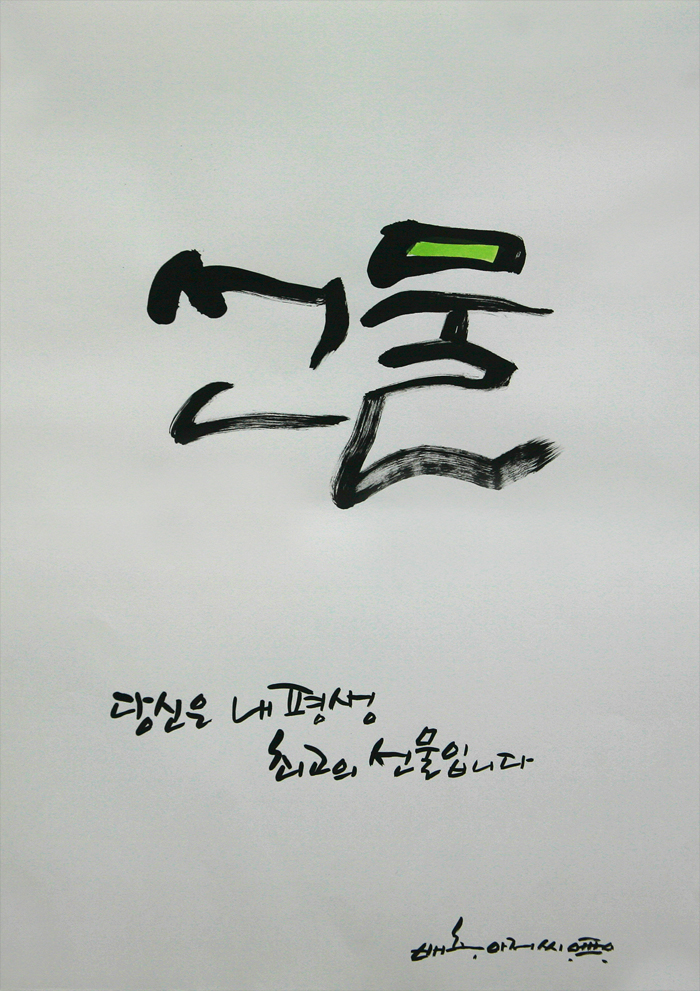 선물
당신은 내 평생
최고의 선물입니다
배추아저씨